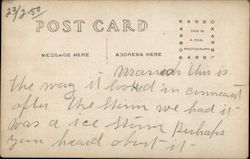 23/2-50
POST CARD
KARBO
THIS IS
A REAL
PHOTOGRAPH
KARBO
MESSAGE HERE
ADDRESS HERE
this is
the way it looked in
after the storm we had it
was a ice storm perhaps
you heard about it-